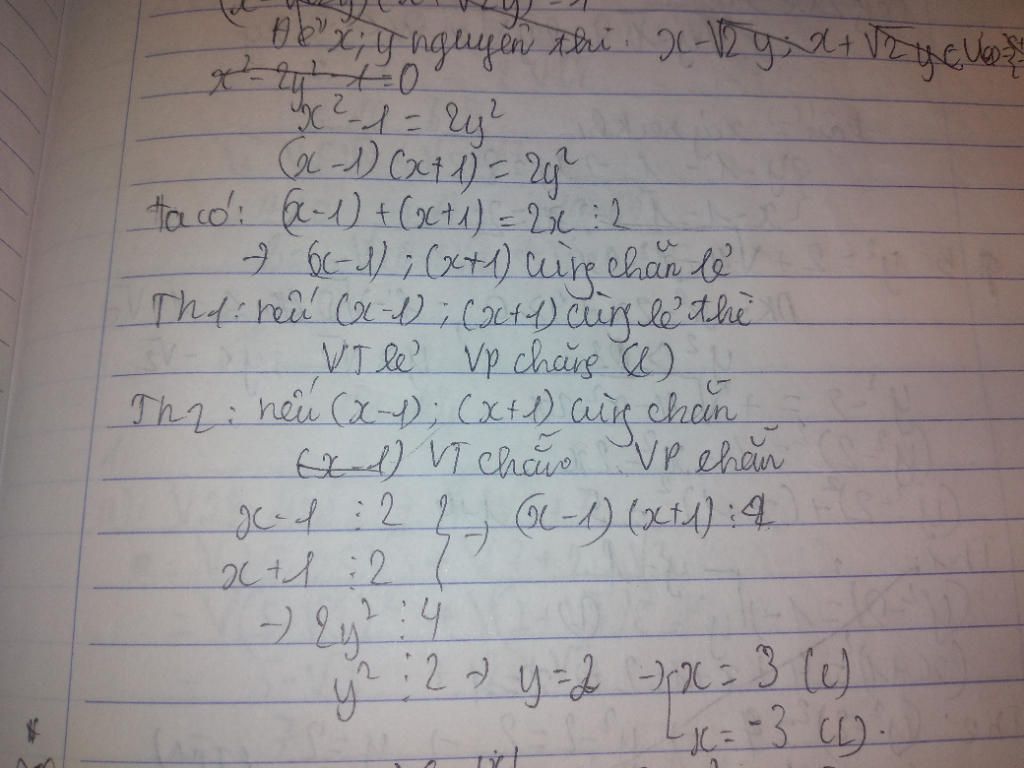 Để x; y nguyên thì: x-√2y; x+√2y ∈ Ư
x²-2y²-1=0
x²-1=2y²
(x-1)(x+1)=2y²
ta có: (x-1)+(x+1)=2x ⋮ 2
→ (x-1); (x+1) cùng chẵn lẻ
Th1: nếu (x-1); (x+1) cùng lẻ thì
VT lẻ VP chẵng (L)
Th2: nếu (x-1); (x+1) cùng chẵn
(x-1) VT chẵn VP chẵn
x-1 ⋮ 2 } → (x-1)(x+1) ⋮ 4
x+1 ⋮ 2
→ 2y² ⋮ 4
y² ⋮ 2 → y=2 → [x=3 (L)
x=-3 (L).